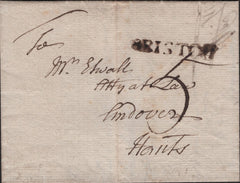 BRISTOL
To
Mr. Elwall
Atty at Law
Andover
Hants
5